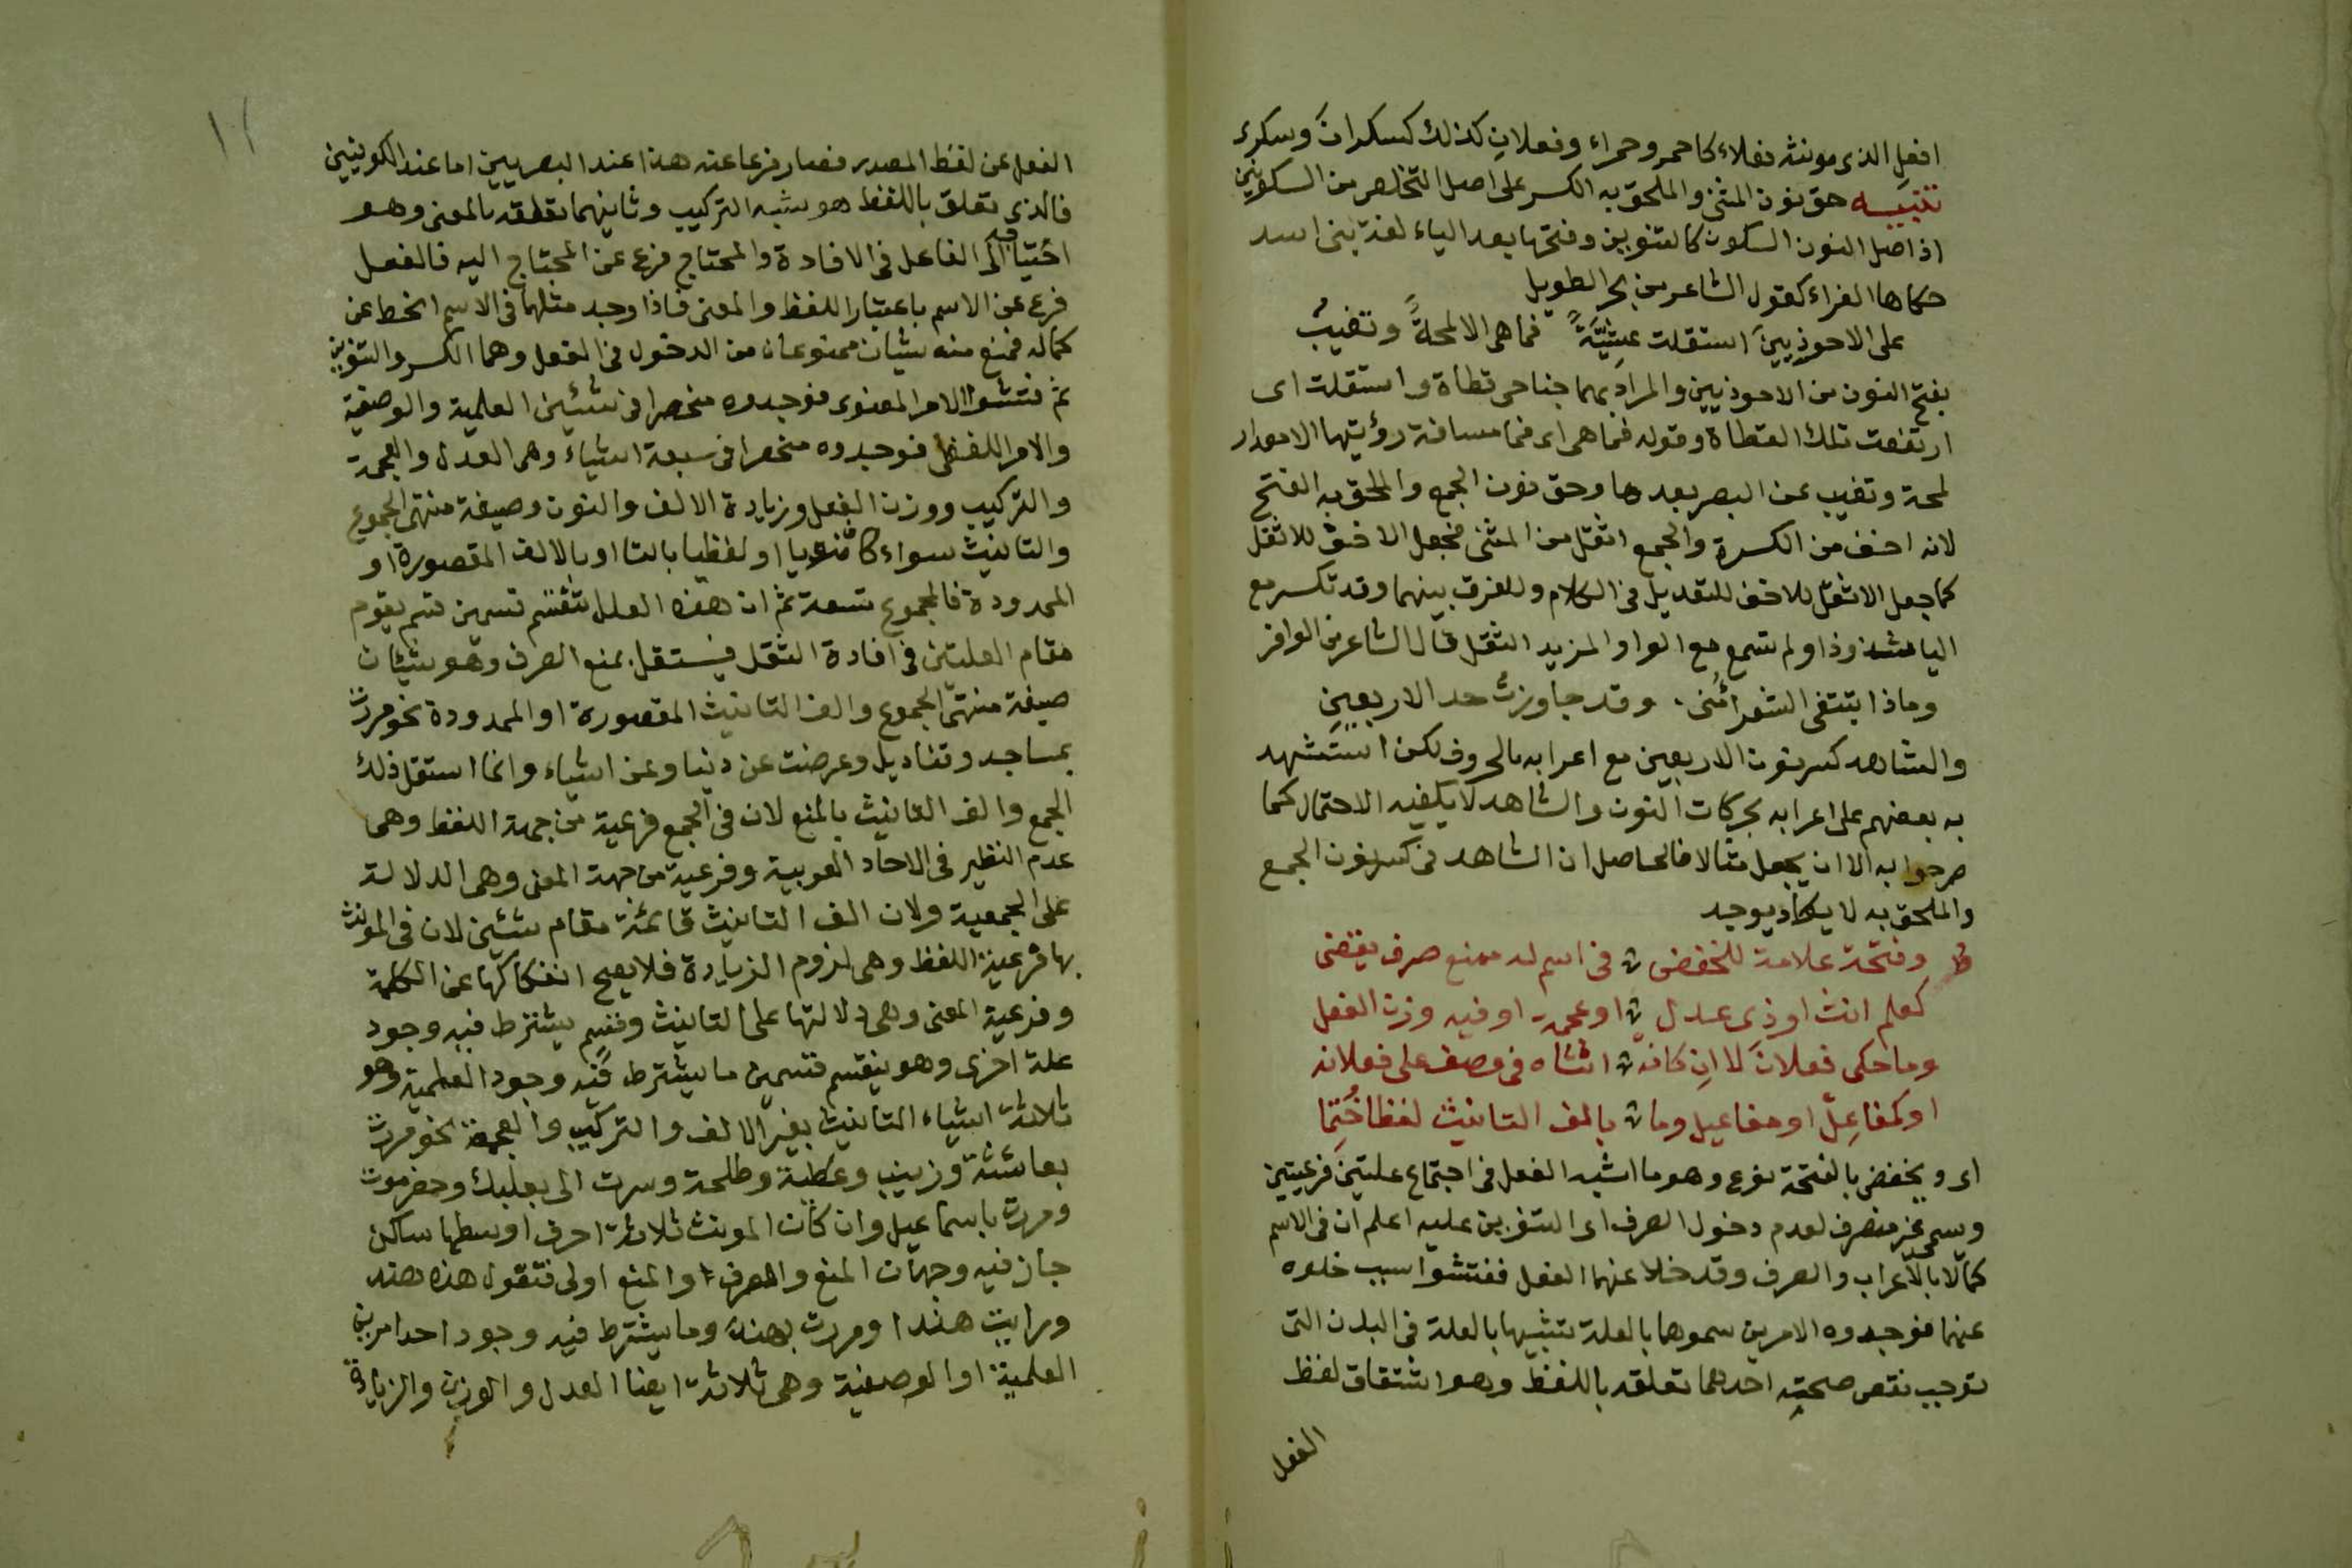 افعل الذى مونثه فعلاء كاحمر وحمراء وفعلان كذلك كسكران وسكرى
تنبيه حق نون المثنى والملحق به الكسر على اصل التخلص من السكونين
اذ اصل النون السكون كالتنوين وفتحها بعد الياء لغة بنى اسد
حكاها الفراء كقول الشاعر من بحر الطويل
على الاحوذيينَ استقلت عشيةً فما هى الا لمحةً وتغيبُ
بفتح النون من الاحوذيين والمراد بهما جناحى قطاة واستقلت اى
ارتفعت تلك القطاة وقوله فما هى اى فما مسافة رؤيتها الا مقدار
لمحة وتغيب عن البصر بعدها وحق نون الجمع والملحق به الفتح
لانه اخف من الكسرة والجمع اثقل من المثنى فجعل الاخف للاثقل
كما جعل الاثقل للاخف للتعديل فى الكلام وللفرق بينهما وقد تكسر مع
اليا شذوذا ولم تسمع مع الواو المزيد الثقل قال الشاعر من الوافر
وماذا تبتغى الشعرا منى وقد جاوزتُ حد الاربعينِ
والشاهد كسر نون الاربعين مع اعرابه بالحروف لكن استشهد
به بعضهم على اعرابه بحركات النون والشاهد لا يكفيه الاحتمال كما
صرحوا به الا ان يجعل مثالا فالحاصل ان الشاهد فى كسر نون الجمع
والملحق به لا يكاد يوجد
ص وفتحة علامة للخفض فى اسم له ممنع صرف يقضى
كعلم انث او ذى عدل او عجمة او فيه وزن الفعل
وما حكى فعلانَ لا ان كانه انثاه فى وصف على فعلانه
او كمفاعِلَ او مفاعيل وما بالف التانيث لفظا خُتِما
اى ويخفض بالفتحة نوع وهو ما اشبه الفعل فى اجتماع علتين فرعيتين
وسمى غير منصرف لعدم دخول الصرف اى التنوين عليه اعلم ان فى الاسم
كمالا بالاعراب والصرف وقد خلا عنهما الفعل ففتشوا سبب خلوه
عنهما فوجدوه الامرين سموهما بالعلة تشبيها بالعلة فى البدن التى
توجب نقص صحته احدهما تعلقه باللفظ وهو اشتقاق لفظ
الفعل
١٢
الفعل عن لفظ المصدر فصار فرعا عنه هذا عند البصريين اما عند الكوفيين
فالذى تعلق باللفظ هو شبه التركيب وثانيهما تعلقه بالمعنى وهو
احتياجه الى الفاعل فى الافادة والمحتاج فرع عن المحتاج اليه فالفعل
فرع عن الاسم باعتبار اللفظ والمعنى فاذا وجد مثلهما فى الاسم انحط عن
كماله فمنع منه شيئان ممنوعان من الدخول فى الفعل وهما الكسر والتنوين
ثم فتشوا الامر المعنوى فوجدوه منحصرا فى شيئين العلمية والوصفية
والامر اللفظى فوجدوه منحصرا فى سبعة اشياء وهى العدل والعجمة
والتركيب ووزن الفعل وزيادة الالف والنون وصيغة منتهى الجموع
والتانيث سواء كا معنويا او لفظيا بالتا او بالالف المقصورة او
الممدودة فالمجموع تسعة ثم ان هذه العلل تنقسم قسمين قسم يقوم
مقام العلتين فى افادة الثقل فيستقل بمنع الصرف وهو شيئان
صيغة منتهى الجموع والف التانيث المقصورة او الممدودة نحو مررت
بمساجد وقناديل وعرضت عن دنيا وعن اشياء وانما استقل ذلك
الجمع والف التانيث بالمنع لان فى الجمع فرعية من جهة اللفظ وهى
عدم النظير فى الاحاد العربية وفرعية من جهة المعنى وهى الدلالة
على الجمعية ولان الف التانيث قائمة مقام شيئين لان فى المونث
بها فرعية اللفظ وهى لزوم الزيادة فلا يصح انفكاكها عن الكلمة
وفرعية المعنى وهى دلالتها على التانيث وقسم يشترط فيه وجود
علة اخرى وهو ينقسم قسمين ما يشترط فيه وجود العلمية وهو
ثلاثة اشياء التانيث بغير الالف والتركيب والعجمة نحو مررت
بعائشة وزينب وعطية وطلحة وسرت الى بعلبك وحضرموت
ومررت باسماعيل وان كان المونث ثلاثة احرف اوسطها ساكن
جاز فيه وجهان المنع والصرف والمنع اولى فتقول هذه هند
ورايت هندا ومررت بهند وما يشترط فيه وجود احد امرين
العلمية او الوصفية وهى ثلاثة ايضا العدل والوزن والزيادة